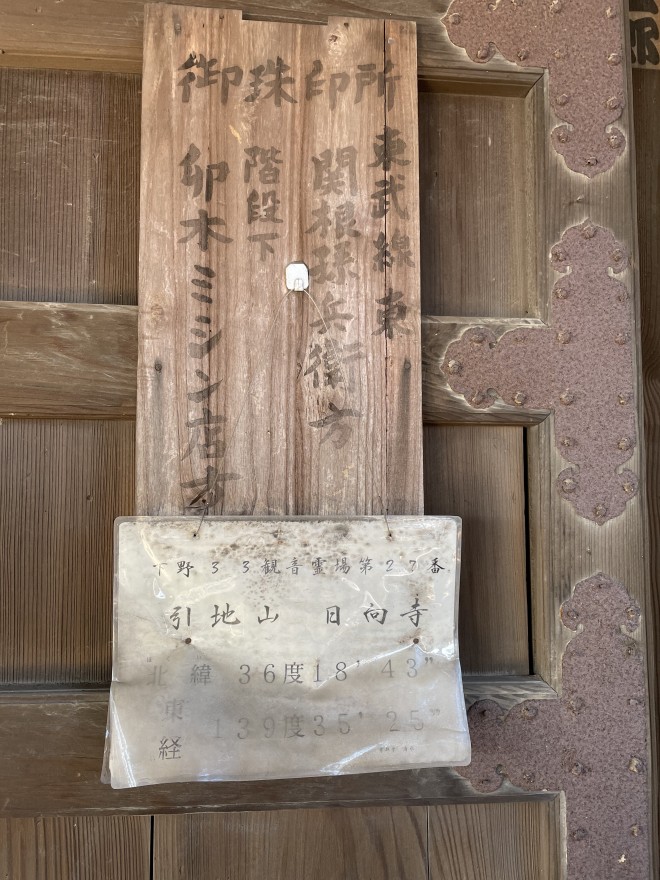 御珠印所
東武線東
関根孫兵衛方
階段下
卯木ミシン店方
下野33観音霊場第27番
引地山 日向寺
北緯 36度18'43"
東経 139度35'25"